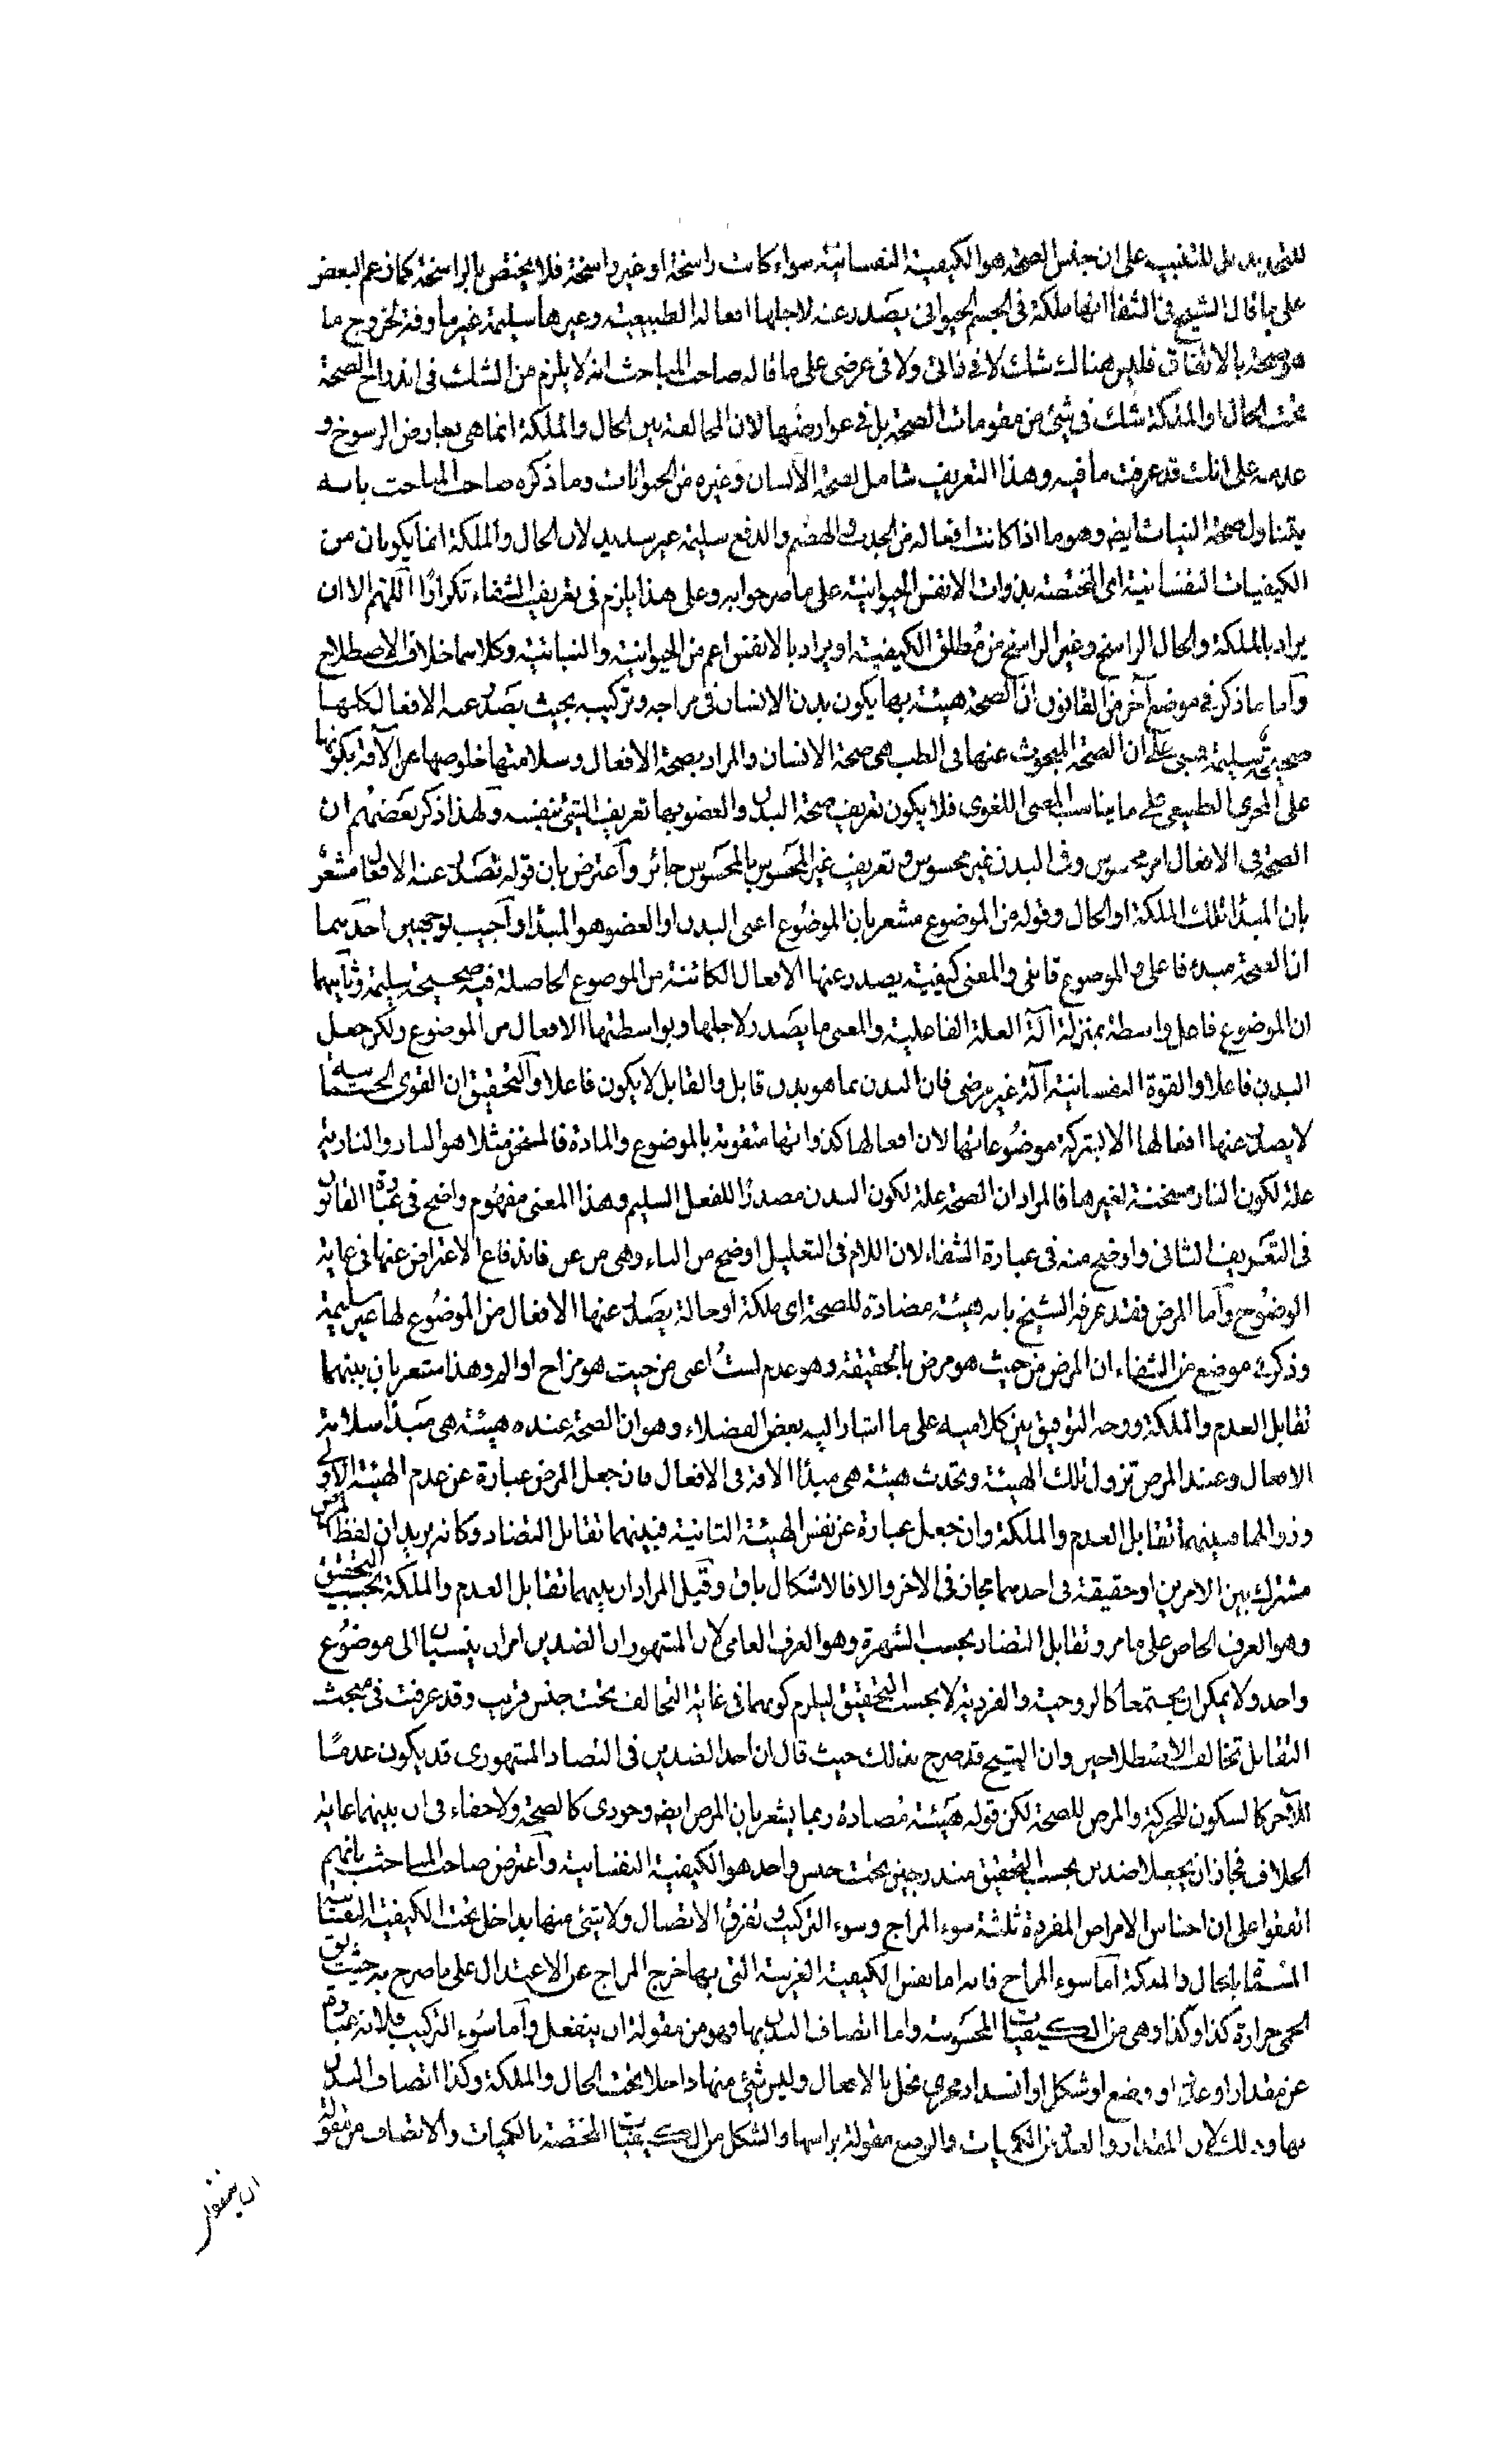 للتحديد بل للتنبيه على ان جنس الصحة هو الكيفية النفسانية سواء كانت راسخة او غير راسخة فلا يختص بالراسخة كما زعم البعض
على ما قال الشيخ فى الشفا انها ملكة فى الجسم الحيوانى يصدر عنه لاجلها افعاله الطبيعية وغيرها سليمة غير ماوفة لخروج ما
هو صحة بالاتفاق فليس هناك شك لا فى ذاتى ولا فى عرضى على ما قاله صاحب المباحث انه لا يلزم من الشك فى اندراج الصحة
تحت الحال او الملكة شك فى شئ من مقومات الصحة بل فى عوارضها لان المخالفة بين الحال والملكة انما هى بعارض الرسوخ و
عدمه على انك قد عرفت ما فيه وهذا التعريف شامل لصحة الانسان وغيره من الحيوانات وما ذكره صاحب المباحث بانه
يتناول صحة النبات ايضا وهو ما اذا كانت افعاله من الجذب والهضم والدفع سليمة غير سديد لان الحال والملكة انما يكونان من
الكيفيات النفسانية اى المختصة بذوات الانفس الحيوانية على ما صرحوا به وعلى هذا يلزم فى تعريف الشفاء تكرارًا اللهم الا ان
يراد بالملكة والحال الراسخ وغير الراسخ من مطلق الكيفية او يراد بالانفس اعم من الحيوانية والنباتية وكلاهما خلاف الاصطلاح
وآما ما ذكر فى موضع آخر من القانون ان الصحة هيئة بها يكون بدن الانسان فى مزاجه وتركيبه بحيث يصدر عنه الافعال كلها
صحيحة سليمة فمبنى على ان الصحة المبحوث عنها فى الطب هى صحة الانسان والمراد بصحة الافعال وسلامتها خلوصها عن الآفة بكونها
على المجرى الطبيعى على ما يناسب المعنى اللغوى فلا يكون تعريف صحة البدن والعضو بها تعريف الشئ بنفسه ولهذا ذكر بعضهم ان
الصحة فى الافعال امر محسوس وفى البدن غير محسوس وتعريف غير المحسوس بالمحسوس جائز وآعترض بان قوله تصدر عنه الافعال مشعر
بان المبدأ تلك الملكة او الحال وقوله من الموضوع مشعر بان الموضوع اعنى البدن او العضو هو المبدأ وآجيب بوجهين احدهما
ان الصحة مبدء فاعلى والموضوع قابلى والمعنى كيفية يصدر عنها الافعال الكائنة من الموضوع الحاصلة فيه صحيحة سليمة وثانيهما
ان الموضوع فاعل واسطة بمنزلة آلة العلة الفاعلية والمعنى ما يصدر لاجلها وبواسطتها الافعال من الموضوع ولكن جعل
البدن فاعلا والقوة النفسانية آلة غير مرضى فان البدن بما هو بدن قابل والقابل لا يكون فاعلا والتحقيق ان القوى الجسمانية
لا يصدر عنها افعالها الا بشركة موضوعاتها لان افعالها كذواتها متقومة بالموضوع والمادة فالمسخن مثلا هو النار والنارية
علة لكون النار مسخنة لغيرها فالمراد ان الصحة علة لكون البدن مصدرًا للفعل السليم وهذا المعنى مفهوم واضح فى عبارة القانون
فى التعريف الثانى واوضح منه فى عبارة الشفاء لان اللام فى التعليل اوضح من الباء وهى من عن فاندفاع الاعتراض عنها فى غاية
الوضوح وآما المرض فقد عرفه الشيخ بانه هيئة مضادة للصحة اى ملكة او حالة يصدر عنها الافعال من الموضوع لها غير سليمة
وذكر فى موضع من الشفاء ان المرض من حيث هو مرض بالحقيقة وهو عدم لست اعنى من حيث هو مزاج او الم وهذا مشعر بان بينهما
تقابل العدم والملكة ووجه التوفيق بين كلاميه على ما اشار اليه بعض الفضلاء وهو ان الصحة عنده هيئة هى مبدأ سلامة
الافعال وعند المرض تزول تلك الهيئة وتحدث هيئة هى مبدأ الآفة فى الافعال فان جعل المرض عبارة عن عدم الهيئة الاولى
وزوالها فبينهما تقابل العدم والملكة وان جعل عبارة عن نفس الهيئة الثانية فبينهما تقابل التضاد وكانه يريد ان لفظ المرض
مشترك بين الامرين او حقيقة فى احدهما مجاز فى الآخر والا فالاشكال باق وقيل المراد ان بينهما تقابل العدم والملكة بحسب التحقيق
وهو العرف الخاص على ما مر وتقابل التضاد بحسب الشهرة وهو العرف العامى لان المشهور ان الضدين امران ينسبان الى موضوع
واحد ولا يمكن ان يجتمعا كالزوجية والفردية لا بحسب التحقيق ليلزم كونهما فى غاية التخالف تحت جنس قريب وقد عرفت فى مبحث
التقابل تخالف الاصطلاحين وان الشيخ قد صرح بذلك حيث قال ان احد الضدين فى التضاد المشهورى قد يكون عدمًا
للآخر كالسكون للحركة والمرض للصحة لكن قوله هيئة مضادة ربما يشعر بان المرض ايضا وجودى كالصحة ولا خفاء فى ان بينهما غاية
الخلاف فجاز ان يجعلا ضدين بحسب التحقيق مندرجين تحت جنس واحد هو الكيفية النفسانية وآعترض صاحب المباحث بانهم
اتفقوا على ان اجناس الامراض المفردة ثلثة سوء المزاج وسوء التركيب وتفرق الاتصال ولا شئ منها بداخل تحت الكيفية النفسانية
المسماة بالحال والملكة آما سوء المزاج فانه اما نفس الكيفية الغريبة التى بها خرج المزاج عن الاعتدال على ما صرح به حيث يق
الحمى حرارة كذا وكذا وهى من الكيفيات المحسوسة واما اتصاف البدن بها وهو من مقولة ان ينفعل وآما سوء التركيب فلانه عبارة
عن مقدار او عدد او وضع او شكل او انسداد مجرى يخل بالافعال وليس شئ منها داخلا تحت الحال والملكة وكذا اتصاف البدن
بها وذلك لان المقدار والعدد من الكميات والوضع مقولة براسها والشكل من الكيفيات المختصة بالكميات والاتصاف من مقولة
ان ينفعل